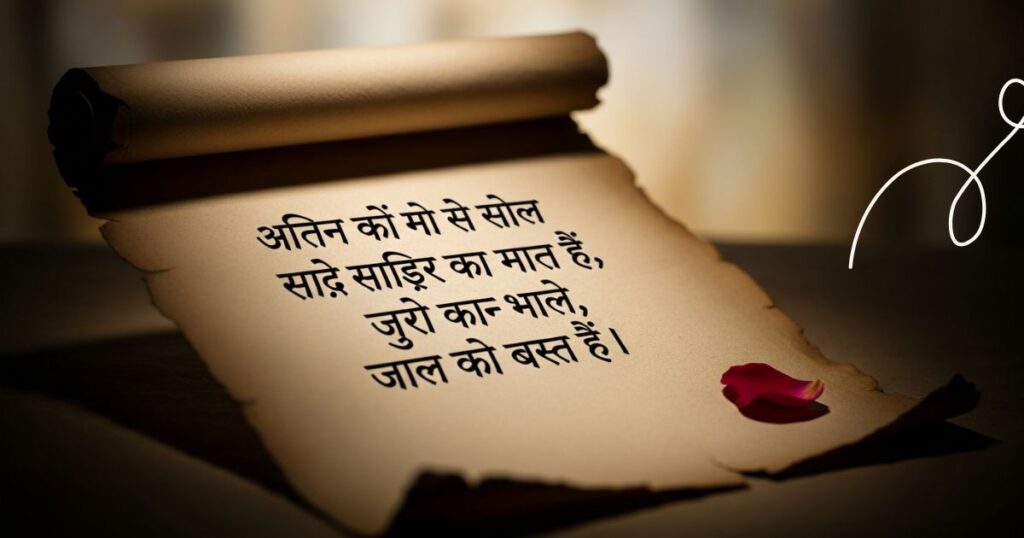 अतिन कों मो से सोल
साद़े साड़िर का मात हैं,
जुरो कान्न भाले,
जाल को बस्त हैं।